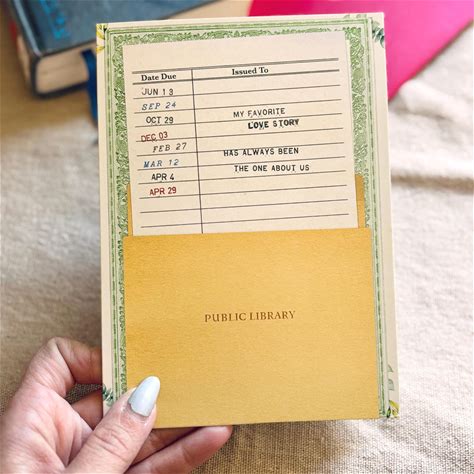 Date Due Issued To
JUN 13
SEP 24
OCT 29 MY FAVORITE
DEC 03 LOVE STORY
FEB 27
MAR 12 HAS ALWAYS BEEN
APR 4 THE ONE ABOUT US
APR 29
PUBLIC LIBRARY